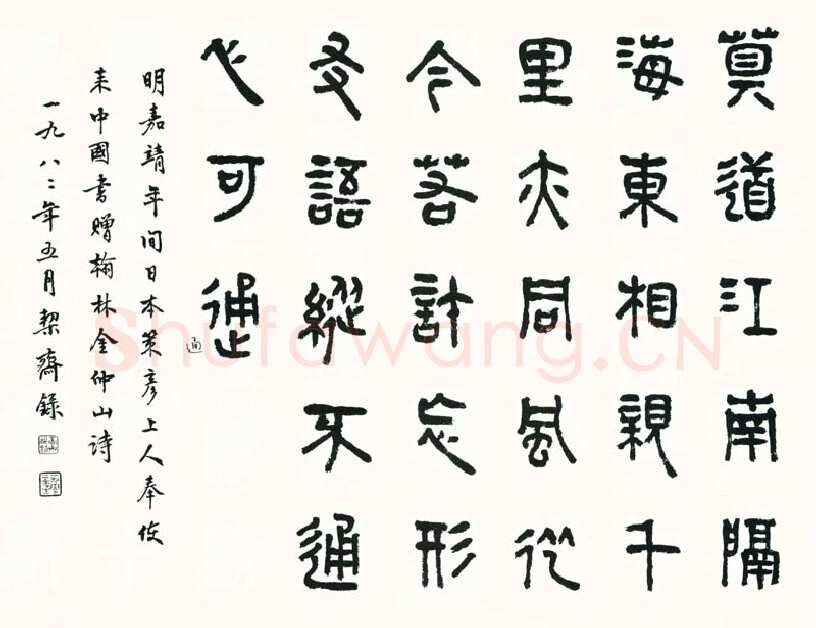 莫道江南隔
海東相親千
里亦同風從
今若許忘形
友語縱不通
心可通
通
明嘉靖年間日本策彥上人奉使
來中國書贈翰林金仲山詩
一九八二年五月栔齋錄
Shufawang.CN